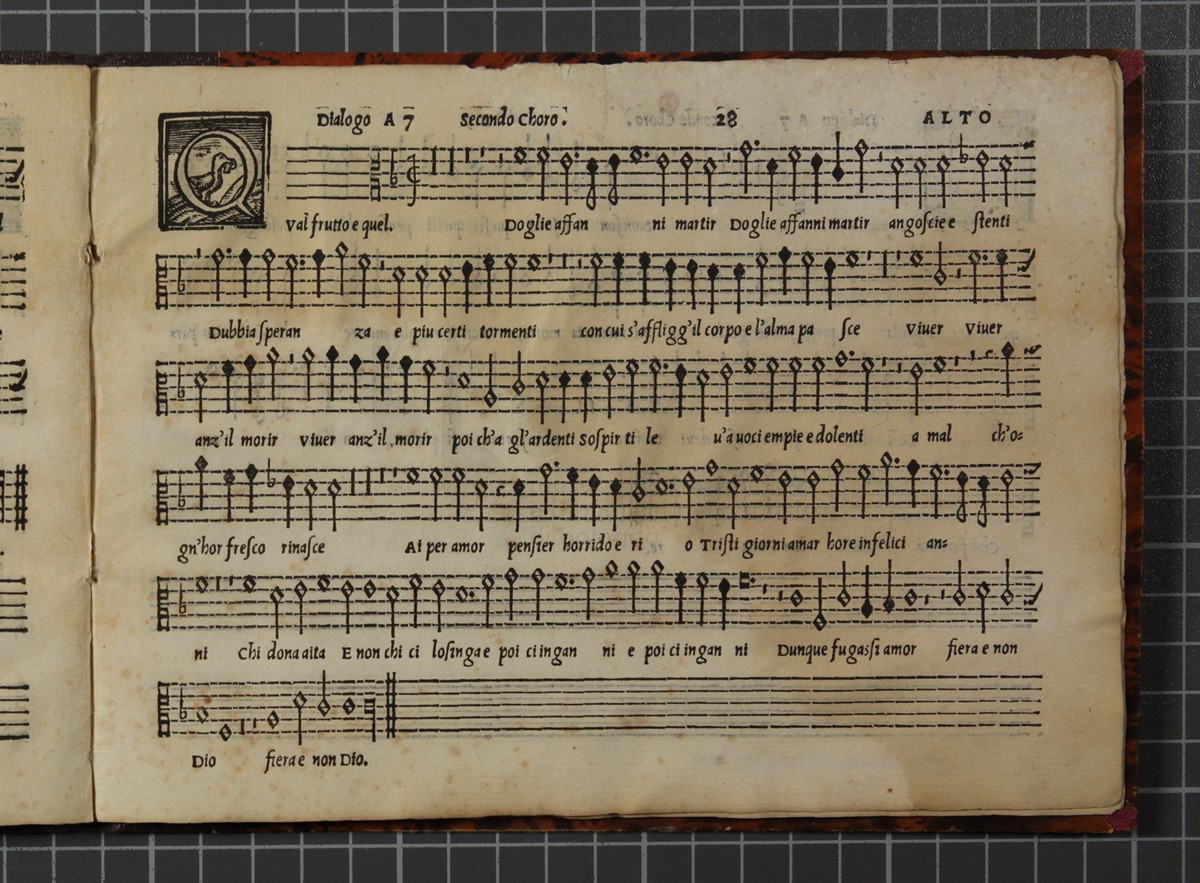 Dialogo A 7 Secondo Choro. 28 ALTO
QVal frutto e quel. Doglie affan ni martir Doglie affanni martir angoſcie e ſtenti
Dubbia ſperan za e piu certi tormenti con cui s'affligg'il corpo e l'alma pa ſce viuer viuer
anz'il morir viuer anz'il morir poi ch'a gl'ardenti Soſpir ti le u'a uoci empie e dolenti a mal ch'o=
gn'hor freſco rinaſce Ai per amor penſier horrido e ri o Triſti giorni amar hore infelici an=
ni Chi dona aita E non chi ci loſinga e poi ci ingan ni e poi ci ingan ni Dunque fugaſſi amor fiera e non
Dio fiera e non Dio.